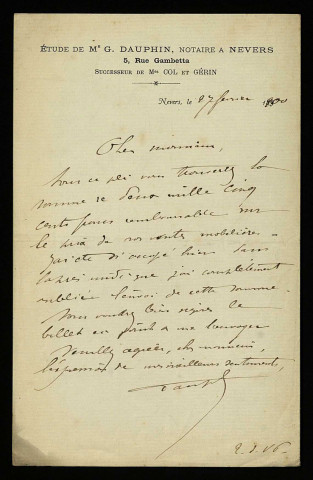 ÉTUDE DE Me G. DAUPHIN, NOTAIRE A NEVERS
5, Rue Gambetta
SUCCESSEUR DE Mes COL ET GÉRIN
Nevers, le 27 février 1900
Cher monsieur,
Sous ce pli vous trouverez la
somme de deux mille cinq
cents francs remboursable sur
le prix de vos ventes mobilières.
J'ai été si occupé hier dans
l'après midi que j'ai complètement
oublié l'envoi de cette somme.
Vous voudrez bien signer le
billet et me l'envoyer
Veuillez agréer, cher monsieur,
l'expression de mes meilleurs sentiments,
Dauphin